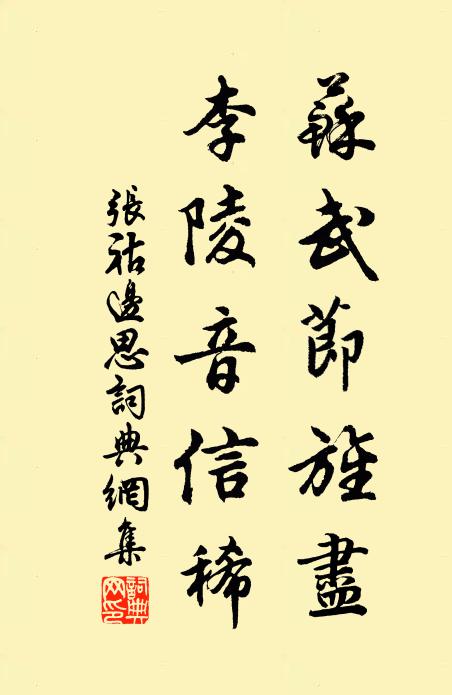 蘇武節旄盡
李陵音信稀
張祜邊思詞典網集
詞典網印